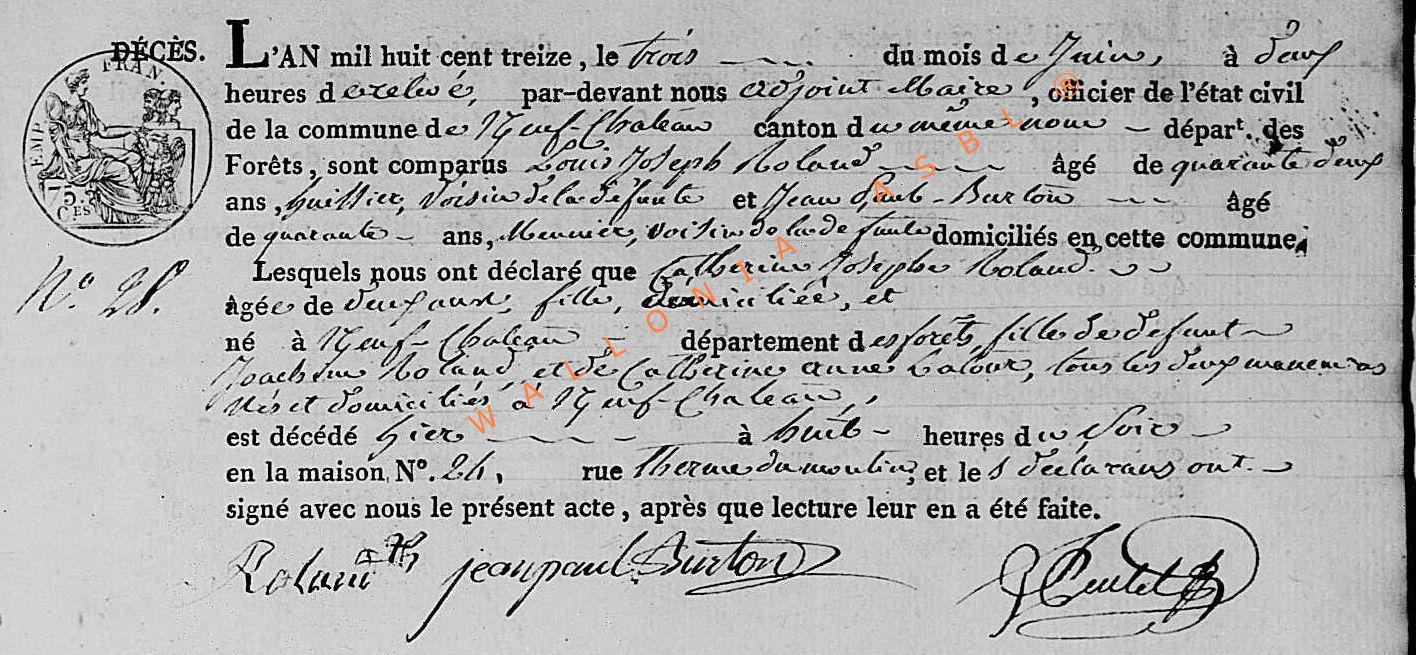 DÉCÈS. L'AN mil huit cent treize, le trois du mois de Juin, à deux
heures de relevé, par-devant nous adjoint Maire, officier de l'état civil
de la commune de Neuf-Chateau canton du même nom départ. des
Forêts, sont comparus Louis Joseph Roland âgé de quarante deux
ans, huissier, voisin de la defunte et Jean Paul Burton âgé
de quarante ans, Meunier, voisin de la defunte domiciliés en cette commune,
N.º 28. Lesquels nous ont déclaré que Catherine Josephe Roland
âgée de deux ans, fille, domiciliée, et
né à Neuf-Chateau département des forêts, fille de defunt
Joachim Roland, et de Catherine Anne Latour, tous les deux
Nés et domiciliés à Neuf-Chateau,
est décédé hier à huit heures du Soir
en la maison, Nº. 24, rue du moulin, et les declarans ont
signé avec nous le présent acte, après que lecture leur en a été faite.
Roland jean paul Burton
EMP. FRAN.
75.
CES
WALLONIA ASBL ®